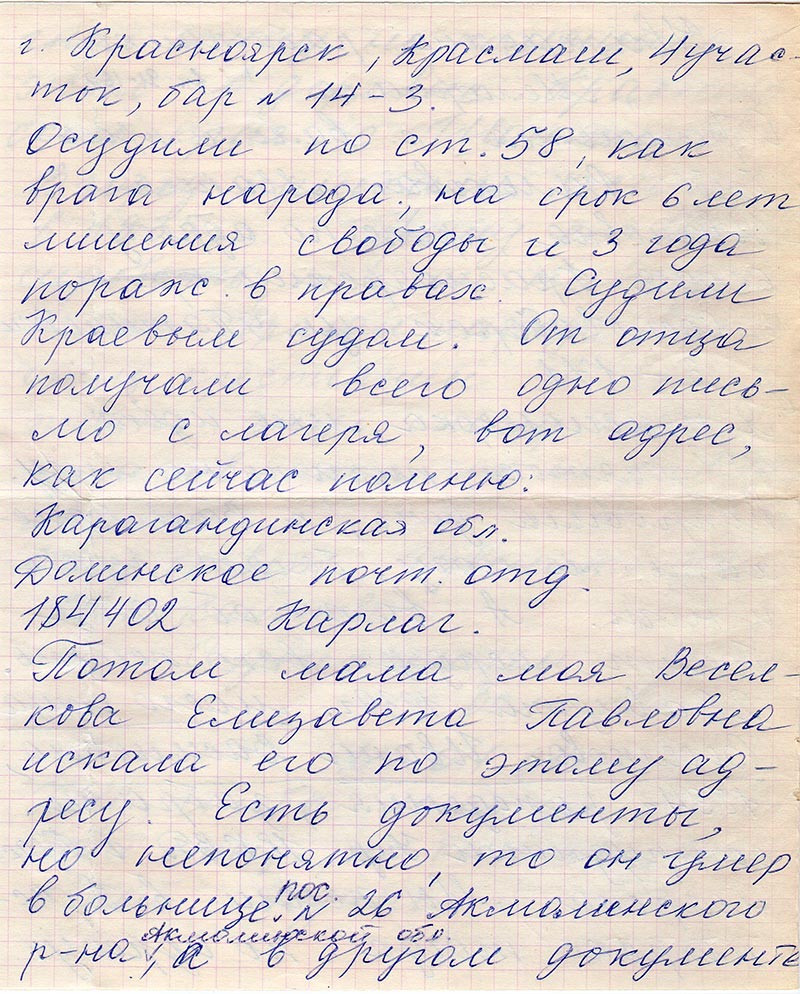 г. Красноярск, Красмаш, 4 учас-
ток, бар № 14-3.
Осудили по ст. 58, как
врага народа, на срок 6 лет
лишения свободы и 3 года
пораж. в правах. Судили
Краевым судом. От отца
получали всего одно пись-
мо с лагеря, вот адрес,
как сейчас помню:
Карагандинская обл.
Долинское почт. отд.
184402 Карлаг.
Потом мама моя Весел-
кова Елизавета Павловна
искала его по этому ад-
ресу. Есть документы,
но непонятно, то он умер
в больнице пос. № 26 Акмолинского
р-на Акмолинской обл., а в другом документе